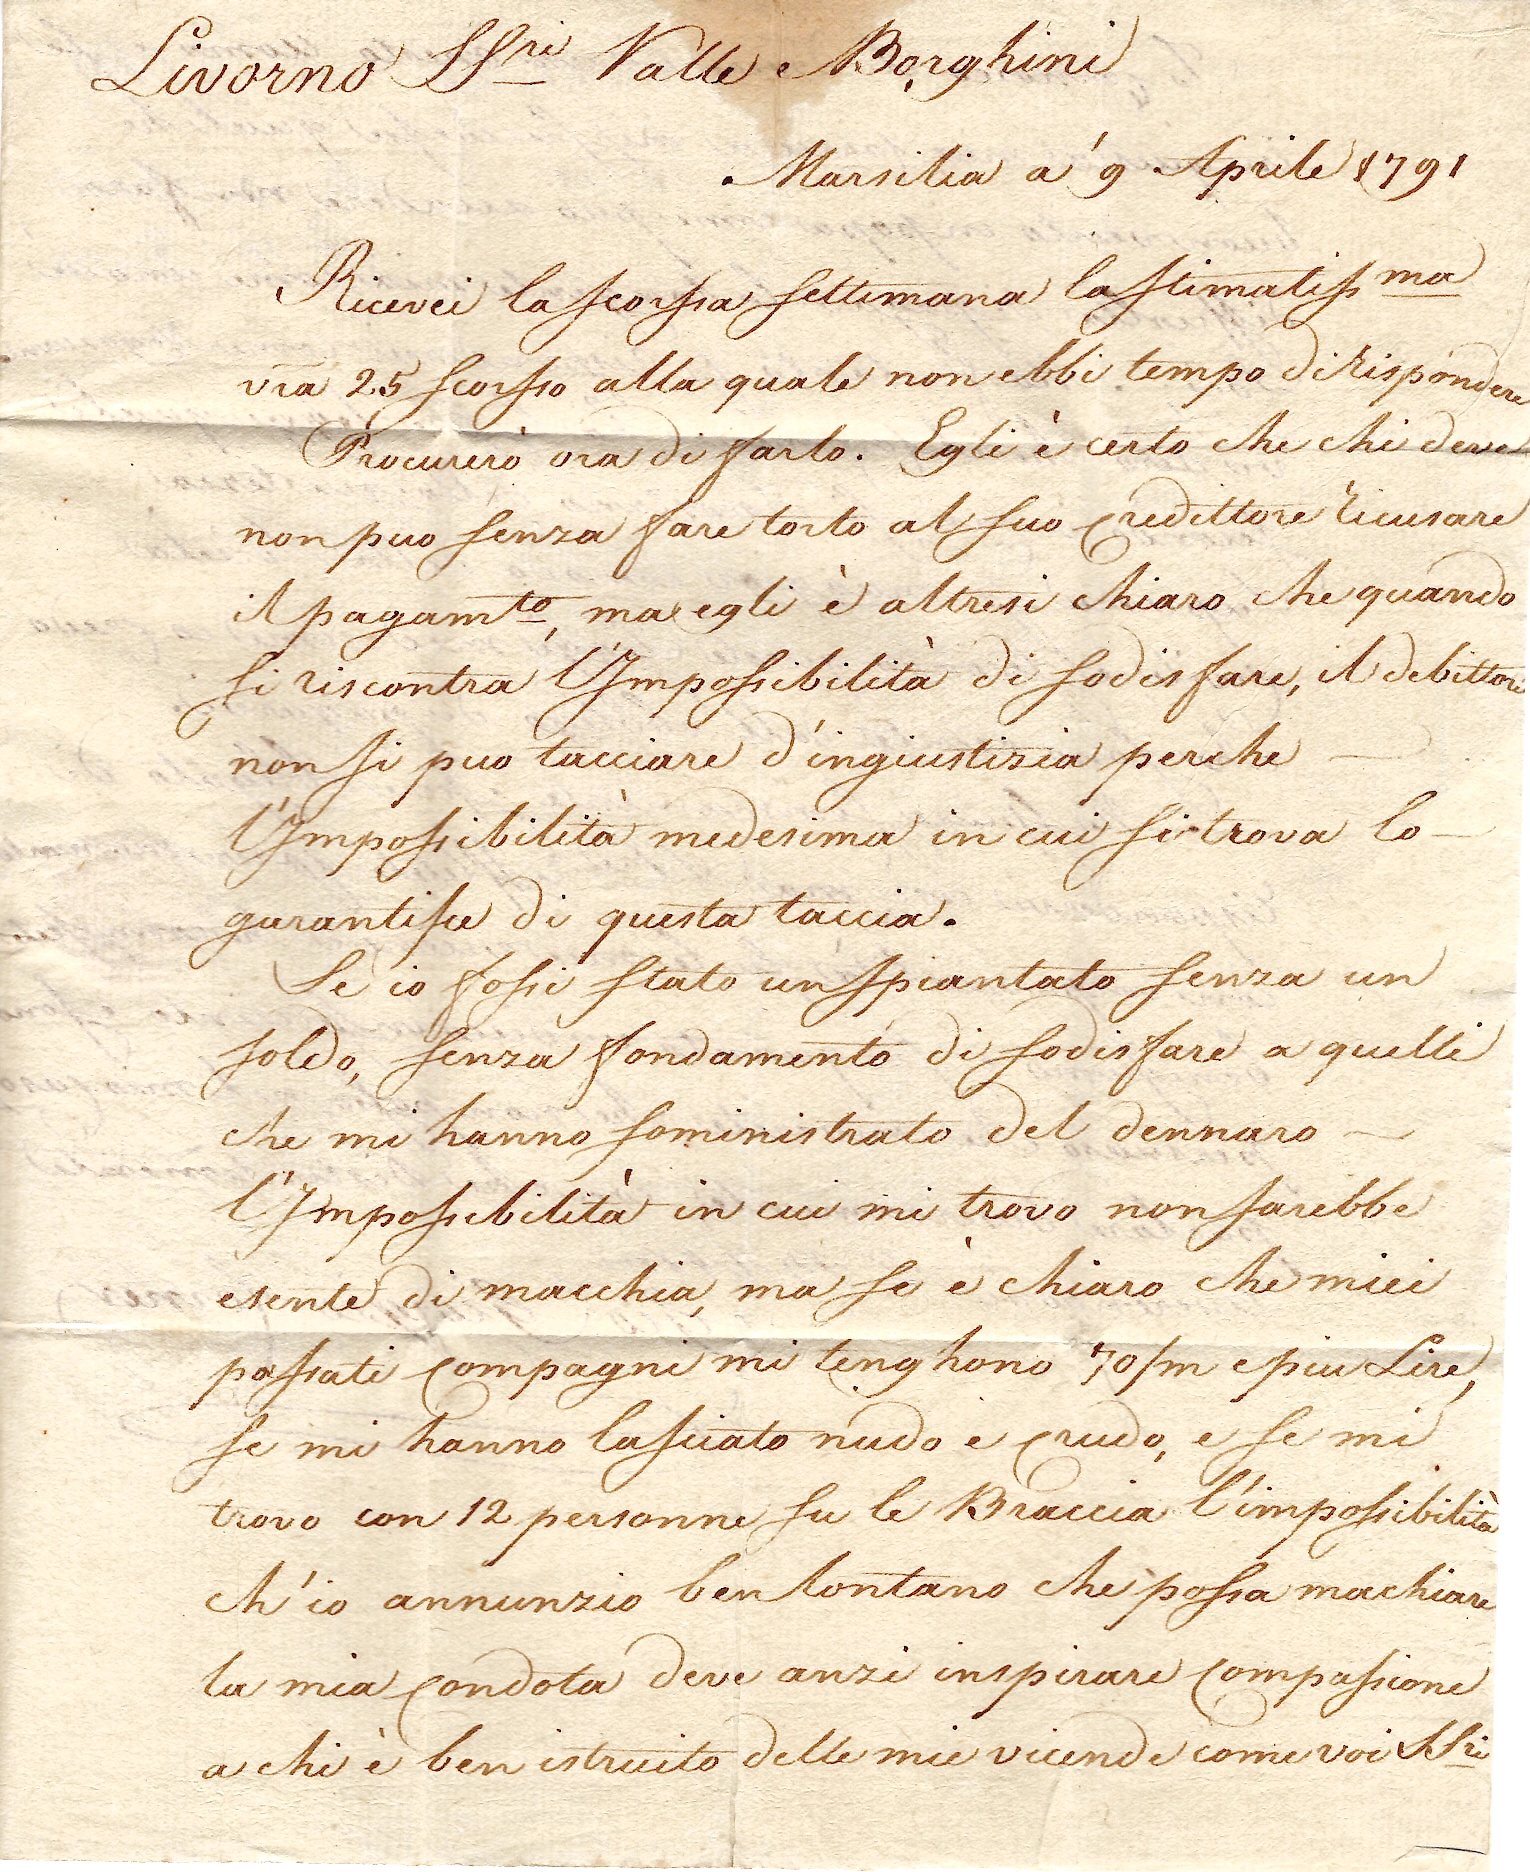 Livorno SSri Valle e Borghini
Marsilia a' 9 Aprile 1791
Ricevei la scorssa settimana la stimatissma
vra 25 scorsso alla quale non ebbi tempo di rispondere
Procurerò ora di farlo. Egli è certo che chi deve
non puo senza fare torto al suo credittore ricusare
il pagamto, ma egli è altresi chiaro che quando
si riscontra l'Impossibilità di sodisfare, il debittore
non si puo tacciare d'ingiustizia perche —
l'Impossibilità medesima in cui si trova lo —
garantisce di questa taccia.
Se io fossi stato un spiantato senza un
soldo, senza fondamento di sodisfare a quelli
che mi hanno soministrato del dennaro —
l'Impossibilità in cui mi trovo non sarebbe
esente di macchia, ma se è chiaro che miei
passati compagni mi tenghono 70/m e piu Lire,
se mi hanno lasciato nudo e crudo, e se mi
trovo con 12 personne su le Braccia l'impossibilità
ch'io annunzio ben lontano che possa machiare
la mia condota deve anzi inspirare compassione
a chi è ben istruito delle mie vicende come voi SSri